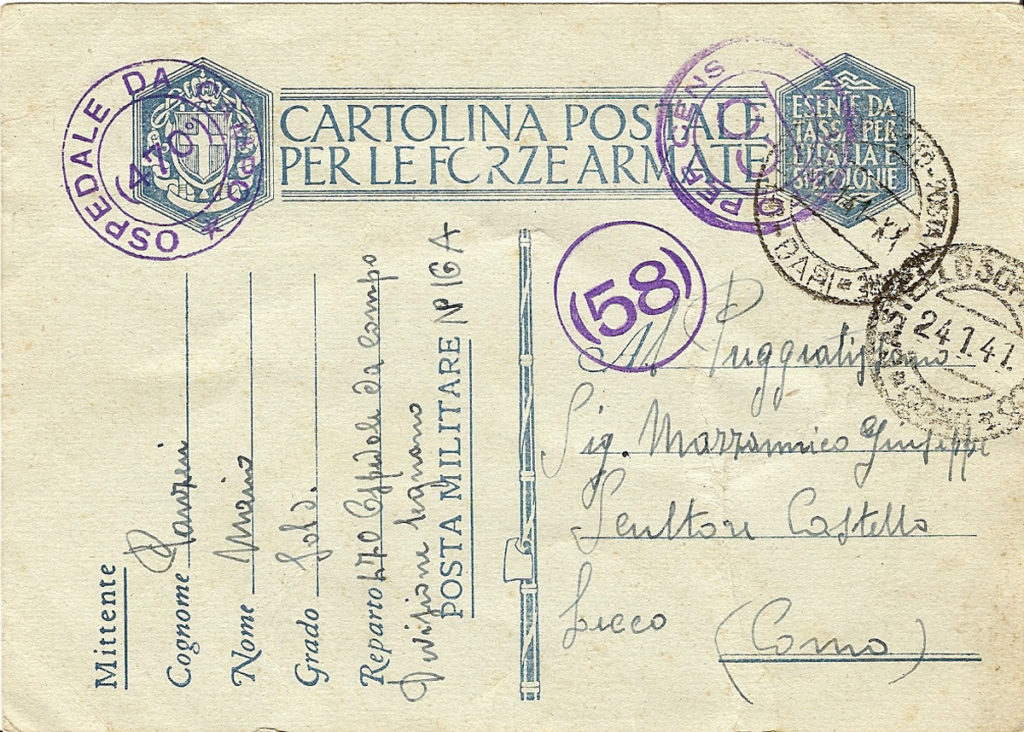 CARTOLINA POSTALE
PER LE FORZE ARMATE
ESENTE DA
TASSA PER
L'ITALIA E
OSPEDALE DA CAMPO
(470°)
PER CENS
(58)
POSTA
24.1.41.
Al
Sig. Mazzannico Giuseppe
Scultore Castello
Lecco
(Como)
Mittente
Cognome
Nome Mario
Grado Sold.
Reparto 470 Ospedale da Campo
Divisione Legnano
POSTA MILITARE N° 16 A